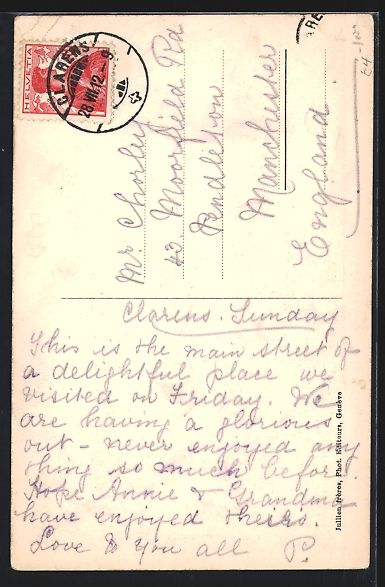 HELVETIA
CLARENS
28.VII.12
Mr Chorley
43 Moorfield Rd
Pendleton
Manchester
England
Clarens. Sunday
This is the main street of
a delightful place we
visited on Friday. We
are having a glorious
out - never enjoyed any
thing so much before
Hope Annie & Grandma
have enjoyed theirs.
Love to you all P.
Jullien frères, Phot. Editeurs, Genève